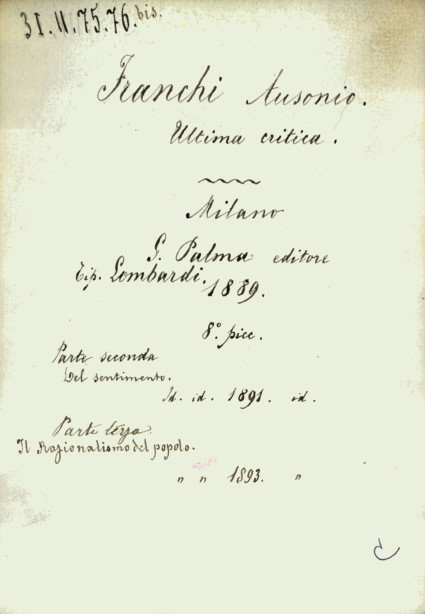 31.II.75.76.bis.
Franchi Ausonio.
Ultima critica.
Milano
G. Palma editore
Tip. Lombardi.
1889.
8.° picc.
Parte seconda
Del sentimento.
Id. id. 1891. id.
Parte terza
Il Razionalismo del popolo.
" " 1893. "